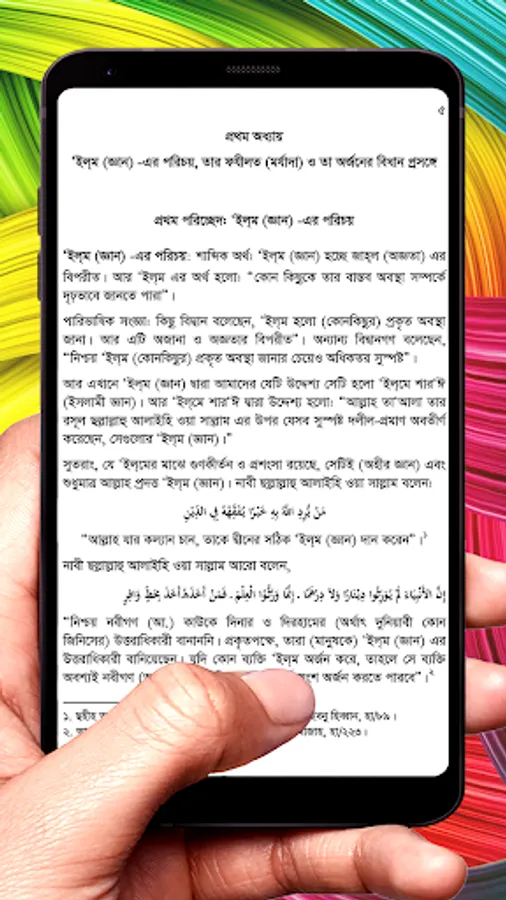 ৫
প্রথম অধ্যায়
'ইল্‌ম (জ্ঞান) -এর পরিচয়, তার ফযীলত (মর্যাদা) ও তা অর্জনের বিধান প্রসঙ্গে
প্রথম পরিচ্ছেদ: 'ইল্‌ম (জ্ঞান) -এর পরিচয়
'ইল্‌ম (জ্ঞান) -এর পরিচয়: শাব্দিক অর্থ: 'ইল্‌ম (জ্ঞান) হচ্ছে জাহ্‌ল (অজ্ঞতা) এর
বিপরীত। আর 'ইল্‌ম এর অর্থ হলো: “কোন কিছুকে তার বাস্তব অবস্থা সম্পর্কে
দৃঢ়ভাবে জানতে পারা”।
পারিভাষিক সংজ্ঞা: কিছু বিদ্বান বলেছেন, 'ইল্‌ম হলো (কোনকিছুর) প্রকৃত অবস্থা
জানা। আর এটি অজানা ও অজ্ঞতার বিপরীত”। অন্যান্য বিদ্বানগণ বলেছেন,
“নিশ্চয় 'ইল্‌ম (কোনকিছুর) প্রকৃত অবস্থা জানার চেয়েও অধিকতর সুস্পষ্ট”।
আর এখানে 'ইল্‌ম (জ্ঞান) দ্বারা আমাদের যেটি উদ্দেশ্য সেটি হলো 'ইল্‌মে শার'ঈ
(ইসলামী জ্ঞান)। আর 'ইল্‌মে শার'ঈ দ্বারা উদ্দেশ্য হলো: “আল্লাহ তা'আলা তার
রসূল ছল্লাল্লাহু আলাইহি ওয়া সাল্লাম এর উপর যেসব সুস্পষ্ট দলীল-প্রমাণ অবতীর্ণ
করেছেন, সেগুলোর 'ইল্‌ম (জ্ঞান)।”
সুতরাং, যে 'ইল্‌মের মাঝে গুণকীর্তন ও প্রশংসা রয়েছে, সেটিই (অহীর জ্ঞান) এবং
শুধুমাত্র আল্লাহ প্রদত্ত 'ইল্‌ম (জ্ঞান)। নাবী ছল্লাল্লাহু আলাইহি ওয়া সাল্লাম বলেন:
مَنْ يُرِدِ اللَّهُ بِهِ خَيْرًا يُفَقِّهْهُ فِي الدِّيْنِ
“আল্লাহ যার কল্যান চান, তাকে দ্বীনের সঠিক 'ইল্‌ম (জ্ঞান) দান করেন”।১
নাবী ছল্লাল্লাহু আলাইহি ওয়া সাল্লাম আরো বলেন,
إِنَّ الأَنْبِيَاءَ لَمْ يُوَرِّثُوا دِيْنَارًا وَلاَ دِرْهَمًا . إِنَّمَا وَرَّثُوا الْعِلْمَ . فَمَنْ أَخَذَهُ أَخَذَ بِحَظٍّ وَافِرٍ
“নিশ্চয় নবীগণ (আ.) কাউকে দিনার ও দিরহামের (অর্থাৎ দুনিয়াবী কোন
জিনিসের) উত্তরাধিকারী বানাননি। প্রকৃতপক্ষে, তারা (মানুষকে) 'ইল্‌ম (জ্ঞান) এর
উত্তরাধিকারী বানিয়েছেন। যদি কোন ব্যক্তি 'ইল্‌ম অর্জন করে, তাহলে সে ব্যক্তি
অবশ্যই নবীগণ অর্জন করতে পারবে”।২
১. ছহীহ হিব্বান, হা/৮৯।
২. মাজাহ, হা/২২৩।